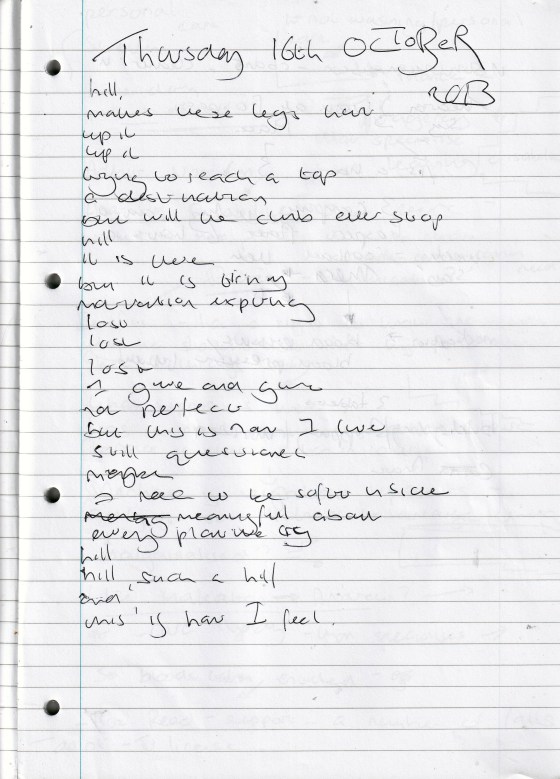 Thursday 16th OCToBeR
2013
hill,
makes these legs hurt
up it
up it
trying to reach a top
a destination
but will the climb ever stop
hill
it is here
but it is tiring
motivation expiring
lost
lost
lost
I give and give
not perfect
but this is how I live
still questioned
maybe
I need to be softer inside
meaningful about
every
hill
hill, such a hill
and,
this is how I feel.